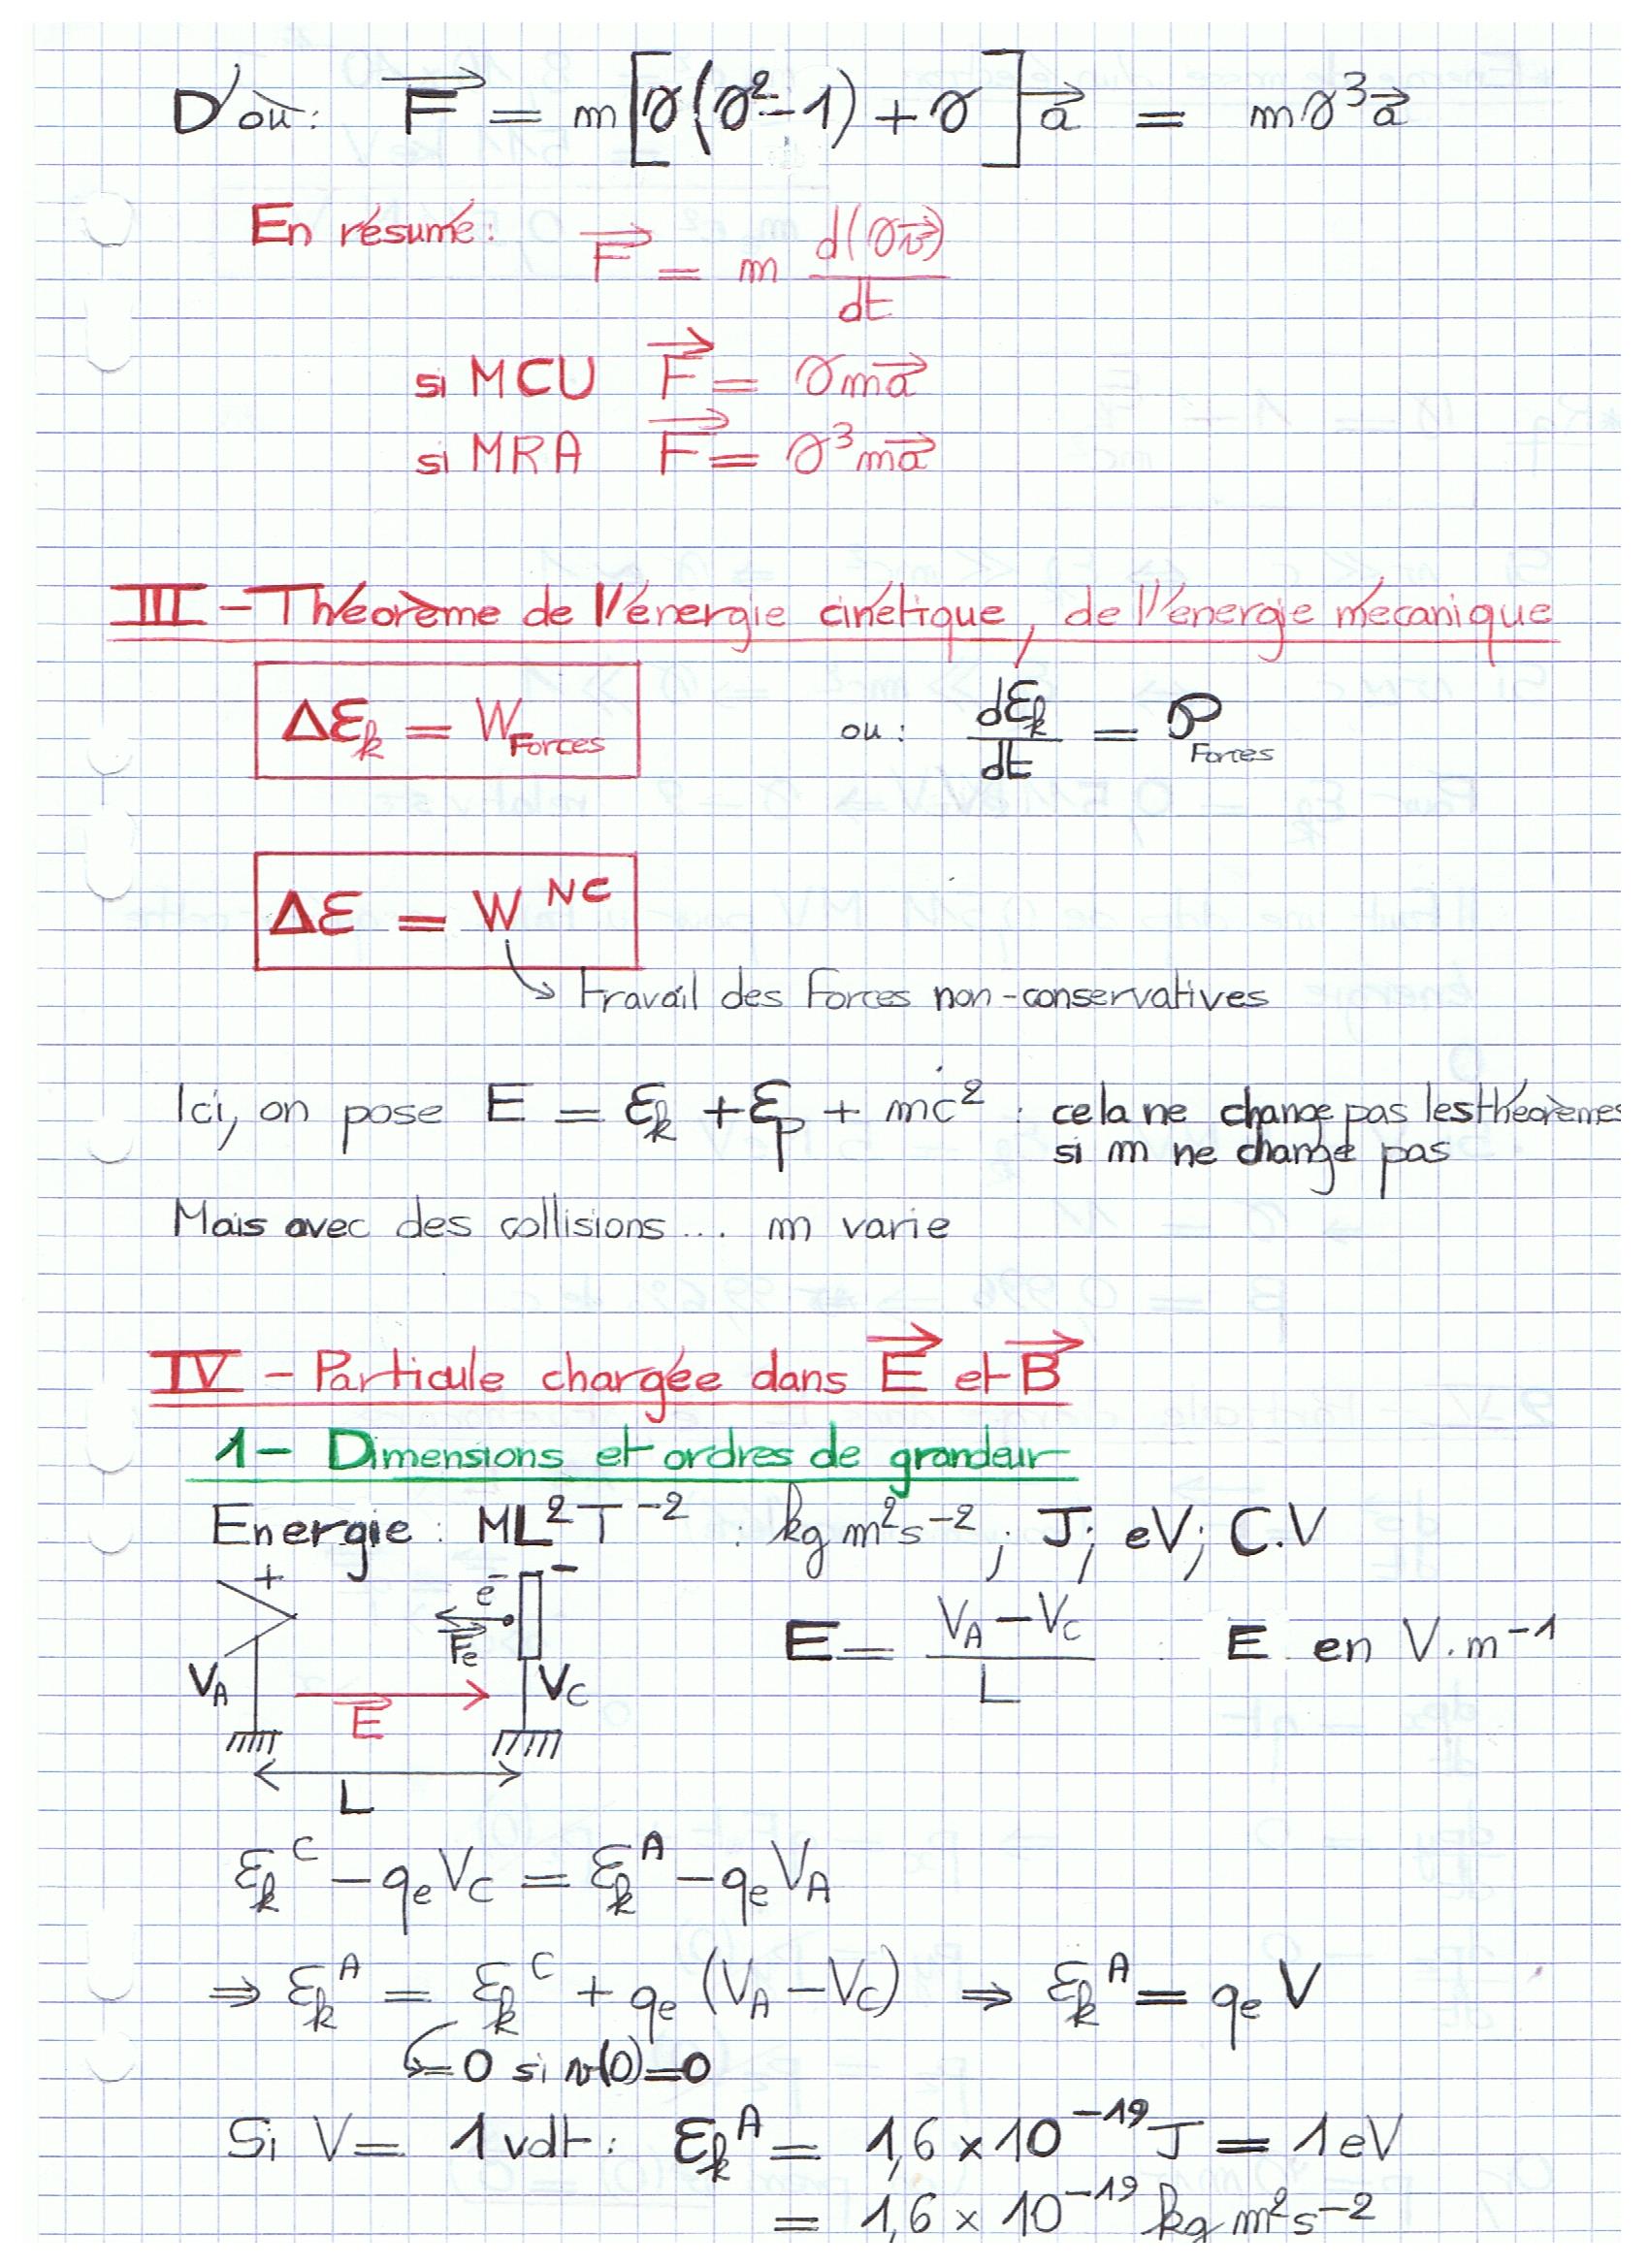 D'où: F⃗ = m[γ(γ²-1) + γ] a⃗ = mγ³a⃗
En résumé: F⃗ = m d(γv⃗)/dt
si MCU F⃗ = γma⃗
si MRA F⃗ = γ³ma⃗
III - Théorème de l'énergie cinétique, de l'énergie mécanique
Δℰk = W Forces ou: dℰk/dt = P Forces
Δℰ = W^NC
↳ travail des forces non-conservatives
Ici, on pose E = ℰk + ℰp + mc² : cela ne change pas les théorèmes
si m ne change pas
Mais avec des collisions... m varie
IV - Particule chargée dans E⃗ et B⃗
1 - Dimensions et ordres de grandeur
Energie : ML²T⁻² : kg m²s⁻² ; J; eV; C.V
+ e⁻ -
F⃗e
E = (VA - VC)/L : E en V.m⁻¹
VA E⃗ VC
L
ℰk^C - qeVC = ℰk^A - qeVA
⇒ ℰk^A = ℰk^C + qe (VA - VC) ⇒ ℰk^A = qe V
↳ = 0 si v(0) = 0
Si V = 1 volt : ℰk^A = 1,6 × 10⁻¹⁹ J = 1 eV
= 1,6 × 10⁻¹⁹ kg m²s⁻²